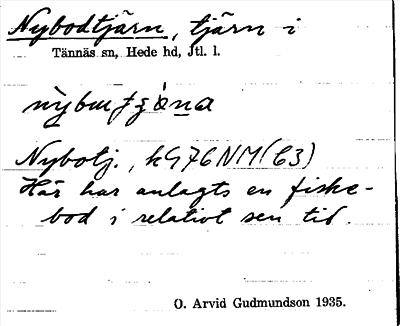 Nybodtjärn, tjärn i
Tännäs sn, Hede hd, Jtl. l.
Nybotj., kG76NM(C3)
Här har anlagts en fiske-
bod i relativt sen tid.
O. Arvid Gudmundson 1935.